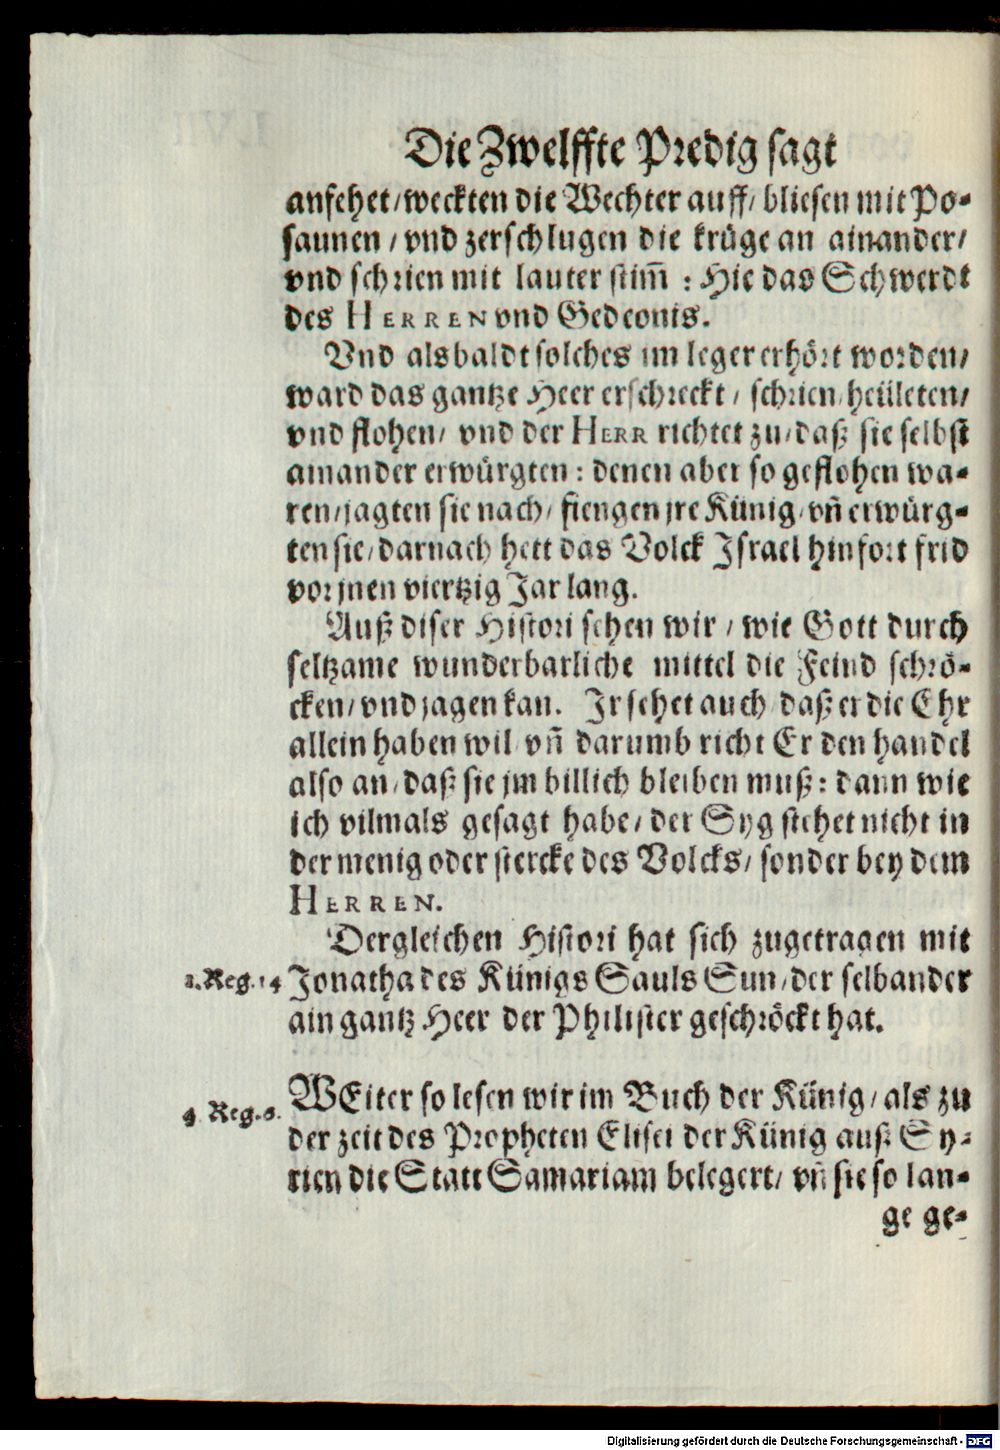 Die Zwelffte Predig sagt
ansehet/weckten die Wechter auff/ bliesen mit Po-
saunen / vnd zerschlugen die krüge an ainander/
vnd schrien mit lauter stim̄ : Hie das Schwerdt
des HERREN vnd Gedeonis.
Vnd alsbaldt solches im leger erhört worden/
ward das gantze Heer erschreckt / schrien/heületen/
vnd flohen/ vnd der HERR richtet zu/daß sie selbst
ainander erwürgten : denen aber so geflohen wa-
ren/jagten sie nach/ fiengen jre Künig/vn̄ erwürg-
ten sie/darnach hett das Volck Israel hinfort frid
vor jnen viertzig Jar lang.
Auß diser Histori sehen wir / wie Gott durch
seltzame wunderbarliche mittel die Feind schrö-
cken/vnd jagen kan. Ir sehet auch daß er die Ehr
allein haben wil vn̄ darumb richt Er den handel
also an/daß sie jm billich bleiben muß : dann wie
ich vilmals gesagt habe/ der Syg stehet nicht in
der menig oder stercke des Volcks/ sonder bey dem
HERREN.
Dergleichen Histori hat sich zugetragen mit
1.Reg.14 Jonatha des Künigs Sauls Sun/der selbander
ain gantz Heer der Philister geschröckt hat.
WEiter so lesen wir im Buch der Künig/als zu
4 Reg.6. der zeit des Propheten Elisei der Künig auß Sy-
rien die Statt Samariam belegert/ vn̄ sie so lan-
ge ge-
Digitalisierung gefördert durch die Deutsche Forschungsgemeinschaft - DFG